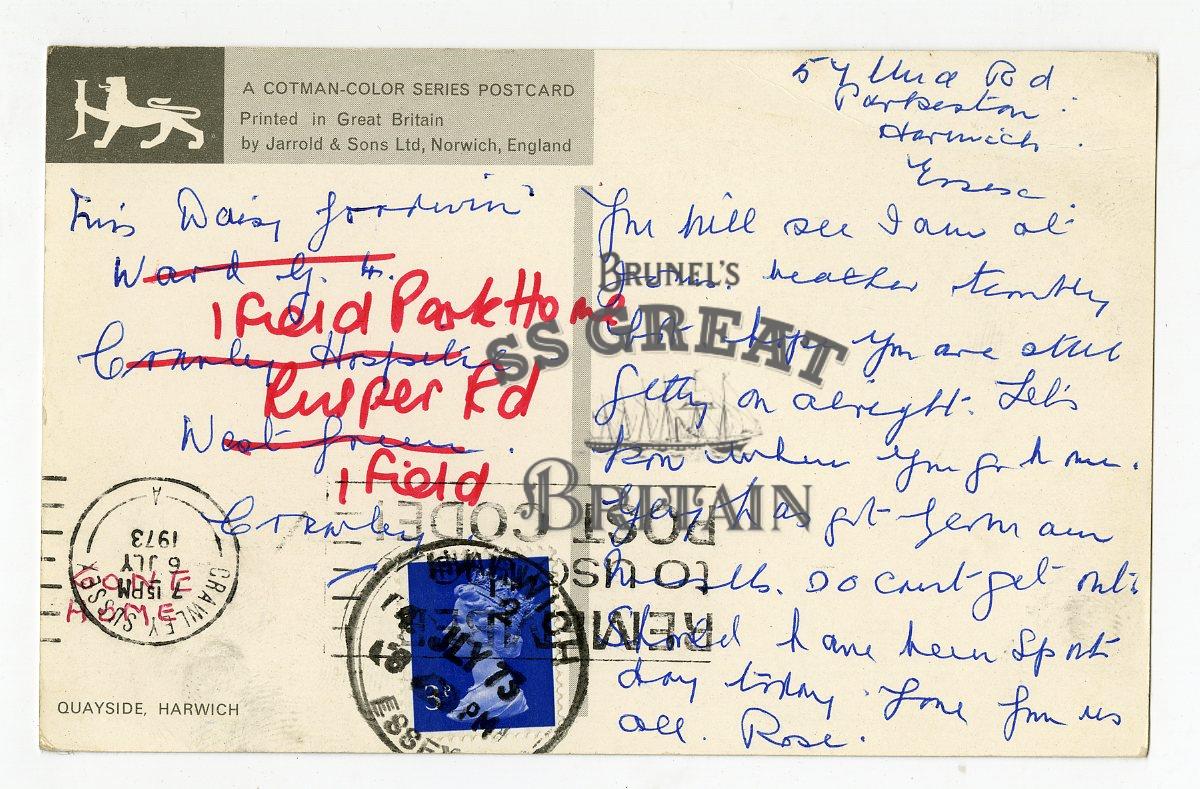 A COTMAN-COLOR SERIES POSTCARD
Printed in Great Britain
by Jarrold & Sons Ltd, Norwich, England
57 Una Rd
Parkeston
Harwich
Essex
Daisy Goodwin
Ward
Ifield Park Home
Crawley Hospital
Rusper Rd
West Green.
Ifield
Crawley
You will see I am at
weather terrible,
but hope you are still
getting on alright. Let's
kow when you go home.
has got German
measles. so can't get out.
Should have been sports
day today. Love from us
all. Rose.
BRUNEL'S
SS GREAT
BRITAIN
REMEMBER
to use
POST CODE
CRAWLEY SUSSEX
A
7 15PM
6 JLY
1973
GONE
HOME
HARWICH
12
JLY 73
PM
ESSEX
QUAYSIDE, HARWICH